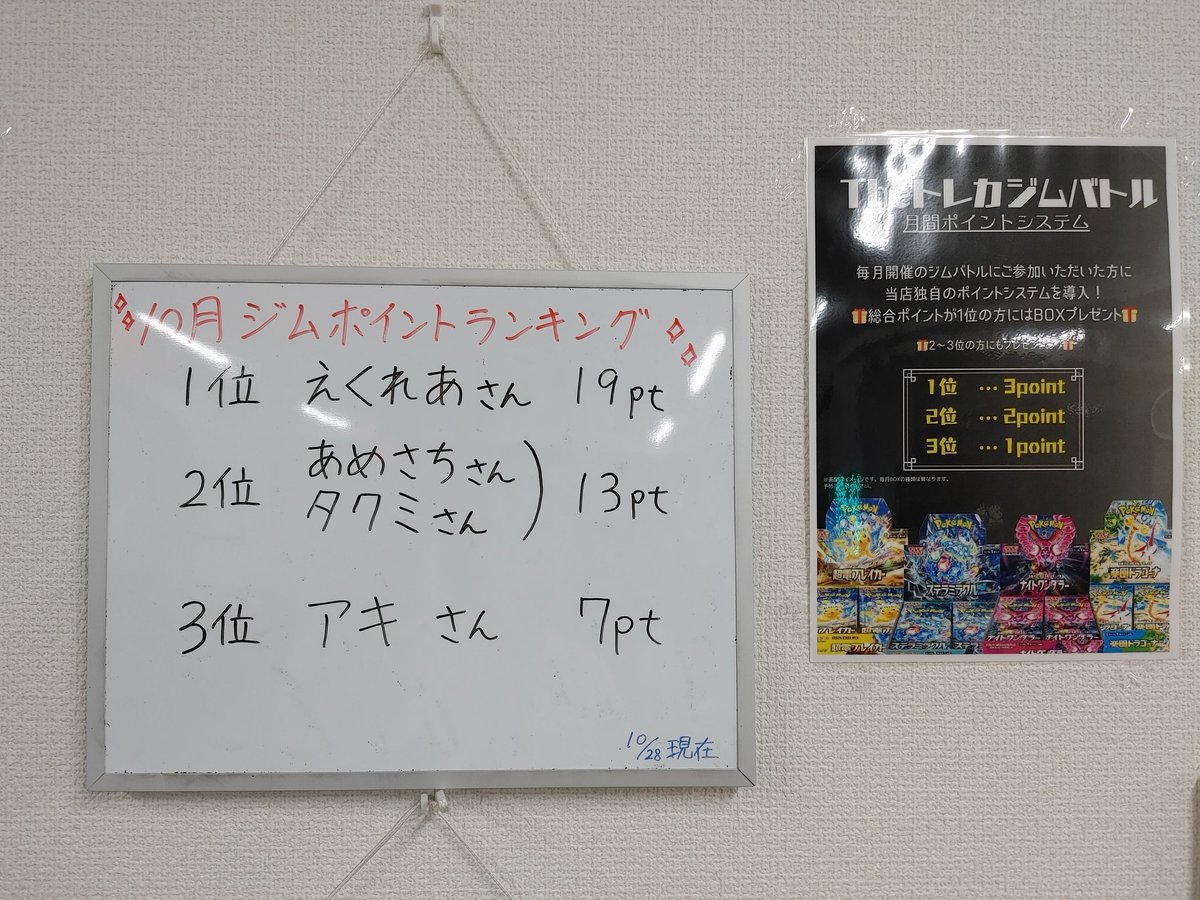 10月 ジムポイントランキング
1位 えくれあさん 19pt
2位 あめさちさん
タクミさん 13pt
3位 アキ さん 7pt
10/28 現在
The トレカジムバトル
月間ポイントシステム
毎月開催のジムバトルにご参加いただいた方に
当店独自のポイントシステムを導入！
総合ポイントが1位の方にはBOXプレゼント
2〜3位の方にもプレゼント
1位 … 3point
2位 … 2point
3位 … 1point
です。毎月BOXの種類は異なります。
Pokémon
超電ブレイカー
Pokémon
ステラミラクル
Pokémon
ナイトワンダラー
Pokémon
楽園ドラゴーナ
超電ブレイカー
ステラミラクル
ナイトワンダラー
ナイトワンダラー
楽園ドラゴーナ